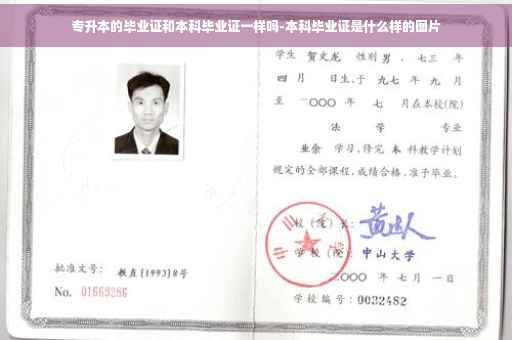 专升本的毕业证和本科毕业证一样吗-本科毕业证是什么样的图片
学生 贺文龙 性别 男 、七三 年
四 月 日生,于 九七 年 九 月
至 二〇〇〇 年 七 月在本校(院)
法 学 专业
业余 学习,修完 本 科教学计划
规定的全部课程,成绩合格,准予毕业。
校(院)长:
学校(院): 中山大学
二〇〇〇 年 七 月 一 日
学校编号: 0032482
批准文号: 教直(1993)8号
No. 01663286